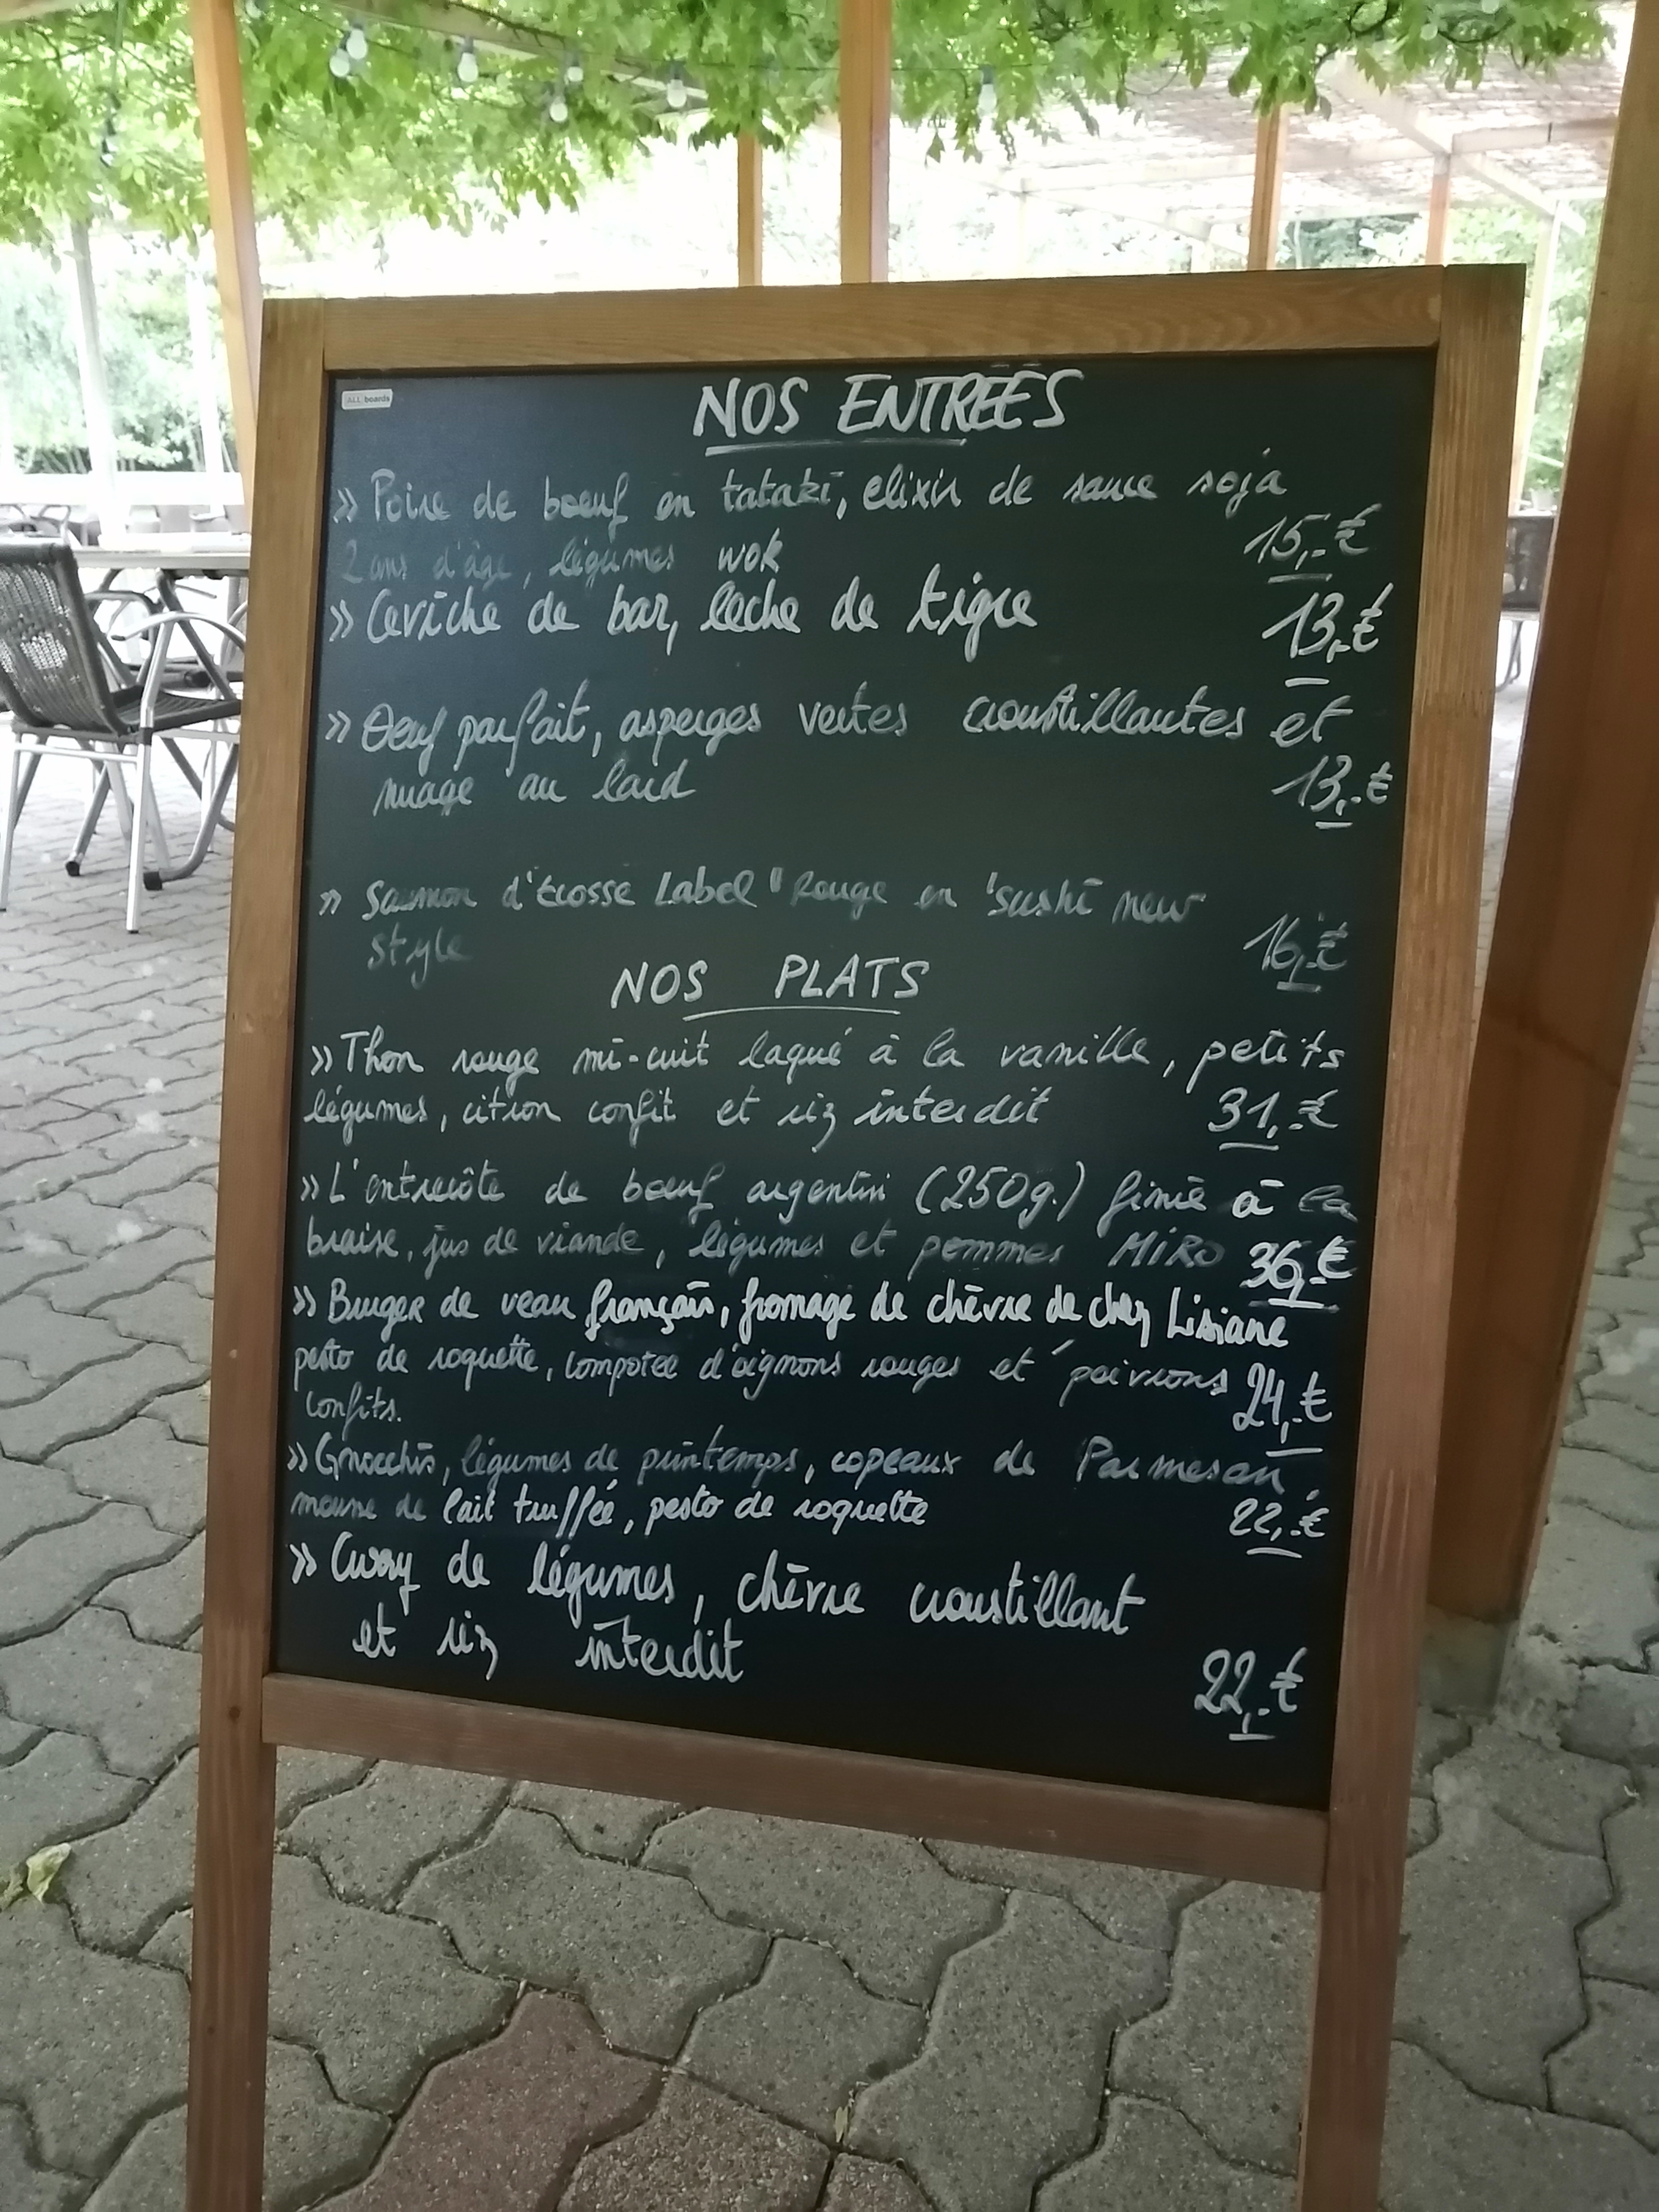 ALL boards
NOS ENTRÉES
» Poire de boeuf en tataki, elixir de sauce soja
2 ans d'âge, légumes wok 15,-€
» Ceviche de bar, leche de tigre 13,-€
» Oeuf parfait, asperges vertes croustillantes et
nuage au lard 13,-€
» Saumon d'Ecosse Label "Rouge en 'sushi new
style 16,-€
NOS PLATS
» Thon rouge mi-cuit laqué à la vanille, petits
légumes, citron confit et riz interdit 31,-€
» L'entrecôte de boeuf argentin (250g.) finie à la
braise, jus de viande, légumes et pommes MIRO 36,-€
» Burger de veau français, fromage de chèvre de chez Lisiane
pesto de roquette, compotée d'oignons rouges et poivrons 24,-€
confits.
» Gnocchis, légumes de printemps, copeaux de Parmesan,
mousse de lait truffée, pesto de roquette 22,-€
» Curry de légumes, chèvre croustillant
et riz interdit 22,-€